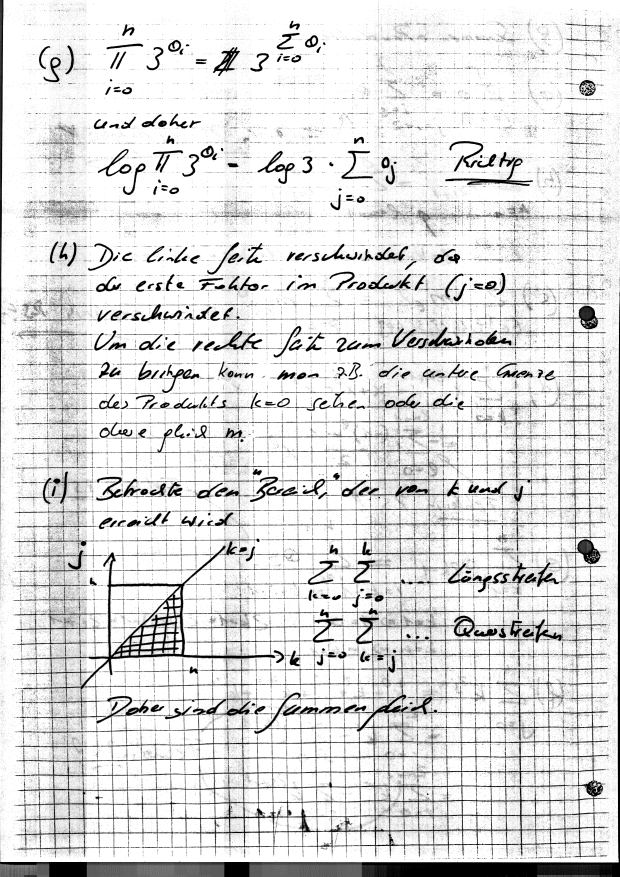 (g) n∏i=0 3^{a_i} = 3^{n∑i=0 a_i}
und daher
log n∏i=0 3^{a_i} = log 3 · n∑j=0 a_j Richtig
(h) Die linke Seite verschwindet, da
der erste Faktor im Produkt (j=0)
verschwindet.
Um die rechte Seite zum Verschwinden
zu bringen kann man z.B. die untere Grenze
des Produkts k=0 setzen oder die
obere gleich m.
(i) Betrachte den "Bereich," der von k und j
erreicht wird
j k=j n∑k=0 k∑j=0 .... Längsstreifen
n n∑j=0 n∑k=j ... Querstreifen
n k
Daher sind die Summen gleich.